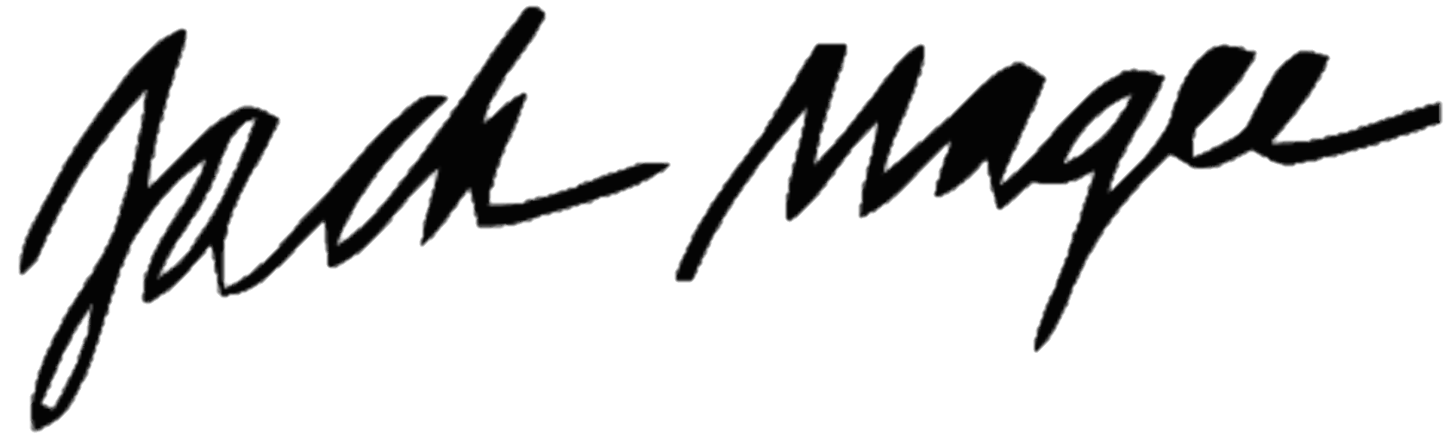 Jack Magee